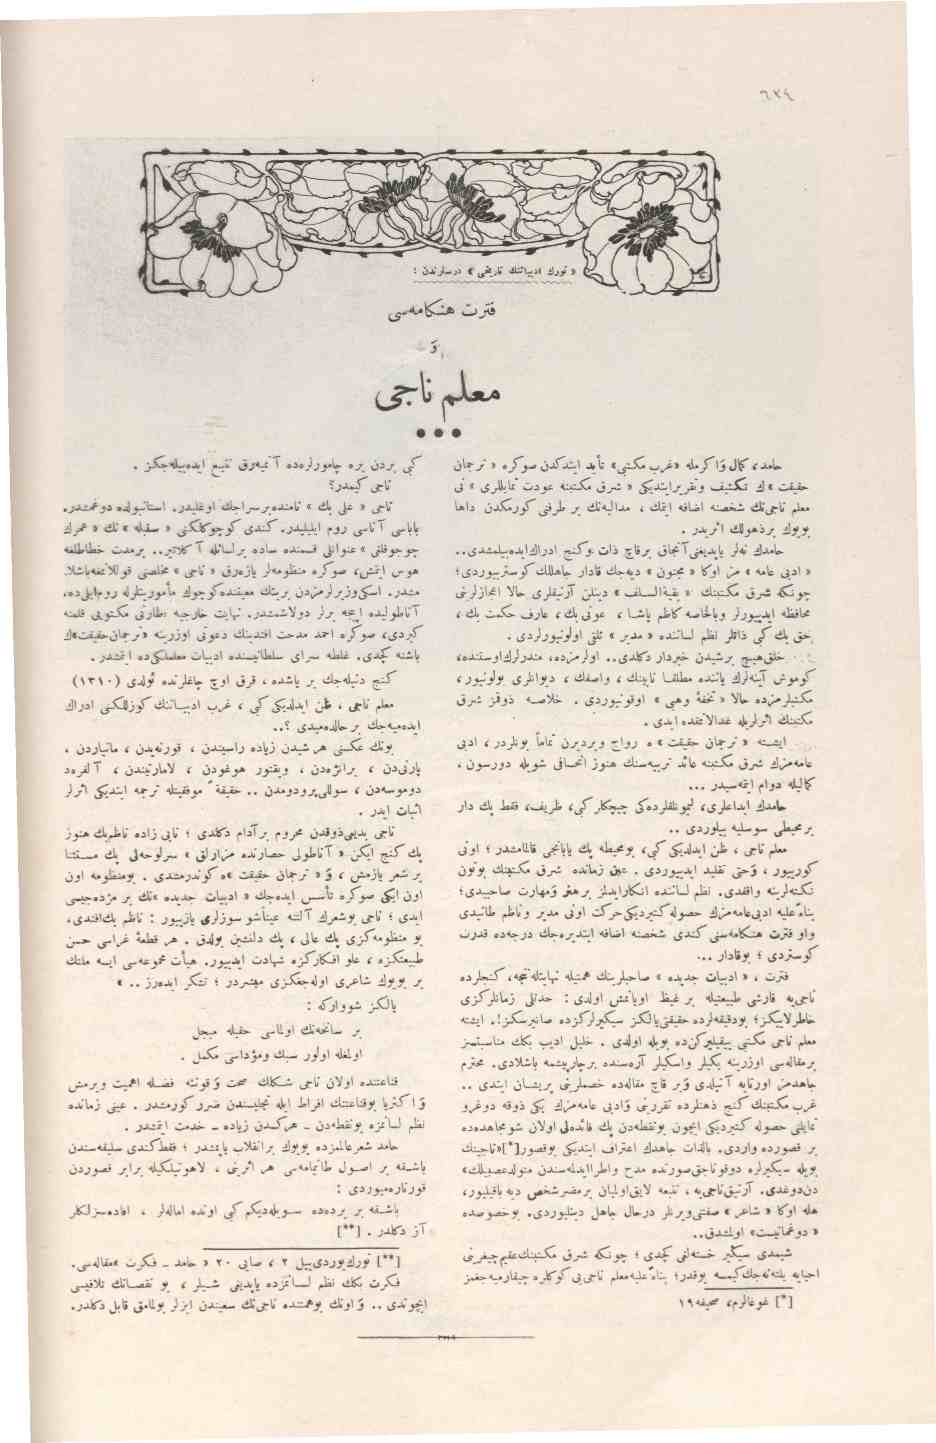 ٦٣٤
« تورك ادبیاتنك تاریخی » درسلرندن :
فترت هنكامه‌سی
وَ
معلم ناجی
حامد، كمال وَ اكرمله «غرب مكتبی» تأید ایتدكدن صوكره « ترجمان
حقیقت »ك تكثیف وتقریرایتدیكی « شرق مكتبنه عودت تمایللری » نی
معلم ناجی‌نك شخصنه اضافه ایتمك ، مدالیه‌نك بر طرفنی كورمكدن داها
بویوك برذهولك اثریدر .
حامدك نه‌لر یاپدیغنی آنجاق برقاچ ذات وكنج ادراك‌ایده‌بیلمشدی..
« ادبی عامه » من اوكا « مجنون » دیه‌جك قادار جاهللك كوستریيوردی؛
چونكه شرق مكتبنك « بقیة‌السلف » دینلن آرتیقلری حالا اعجازلرینی
محافظه ایدییورلر وبالخاصه كاظم پاشا ، عونی بك ، عارف حكمت بك ،
حق بك كبی ذاتلر نظم لساننده « مدیر » تلقی اولونیورلردی .
خلق هیچ برشیدن خبردار دكلدی.. اولرمزده، مندرلرك‌اوستنده،
كوموش آینه‌لرك یاننده مطلقا نابینك ، واصفك ، دیوانلری بولونیور،
مكتبلرمزده حالا « تحفهٔ وهبی » اوقونیوردی . خلاصه ذوقمز شرق
مكتبنك اثرلریله غدالانمقده ایدی .
ایشته « ترجمان حقیقت » ه رواج ویردیرن تماماً بونلردر ، ادبی
عامه‌مزك شرق مكتبنه عائد تربیه‌سنك هنوز انحرافی شویله دورسون ،
كمالیله دوام ایتمه‌سیدر ...
حامدك ابداعلری، لیمونلقلرده‌كی چیچكلر كبی، ظریف، فقط پك دار
بر محیطی سوسلیه بیلوردی ..
معلم ناجی ، ظن ایدلدیكی كبی، بومحیطه پك یابانجی قالمامشدر ؛ اونی
كورییور ، وَحتی تقلید ایدییوردی . عین زمانده شرق مكتبنك بوتون
نكته‌لرینه واقفدی. نظم لساننده انكارایدلمز برهنر وَمهارت صاحبیدی؛
بناءً علیه ادبی‌عامه‌مزك حصوله كتیردیكی حركت اونی مدیر وناظم طانیدی
واو فترت هنكامه‌سنی كندی شخصنه اضافه ایتدیره‌جك درجه‌ده قدرت
كوستردی ؛ بوقادار ...
فترت ، « ادبیات جدیده » صاحبلرینك همتیله نهایتلنه‌نجه، كنجلرده
ناجی‌یه قارشی طبیعتیله بر غیظ اویانمش اولدی : حدتلی زمانلركزی
خاطرلاییكز؛ بودقیقه‌لرده حقیقتی یالكز سیكیرلركزده صانیرسكز!. ایشته
معلم ناجی مكتبی ییقیلیركن‌ده بویله اولدی . خلیل ادیب بكك مناسبتسز
برمقاله‌سی اوزرینه یكیلر واسكیلر آره‌سنده برچارپیشمه باشلادی. محترم
جاهدمز اورتایه آتیلدی وَبر قاچ مقاله‌ده خصملرینی پریشان ایتدی ..
غرب مكتبنك كنج ذهنلرده تقررینی وَادبی عامه‌مزك یكی ذوقه دوغرو
تمایلنی حصوله كتیردیكی ایچون بونقطه‌دن پك فائده‌لی اولان شومجاهده‌ده
بر قصورده واردی. بالذات جاهدك اعتراف ایتدیكی بوقصور[*]«ناجینك
بویله سیكیرلره دوقوناجق‌صورتده مدح واطراایدلمه‌سندن متولدعصبیلك»
دن‌دوغدی. آرتیق ناجی‌یه ، تتبعه لایق‌اولمیان برمضرشخص دیه باقیلیور،
هله اوكا « شاعر » صفتنی‌ویرنلر درحال جاهل دینلیوردی. بوخصوصده
« دوغماتیست » اولمشدق..
شیمدی سیكیر خسته‌لغی كچدی ؛ چونكه شرق مكتبنك‌عقیم‌چیغیرینی
احیایه یلتنه‌جك‌كیمسه یوقدر؛ بناءً علیه معلم ناجی‌یی كوكلره چیقارمیه‌جغمز
[*] غوغالرم، صحیفه ١٩
كبی یردن یره چامورلره‌ده آتمیه‌رق تتبع ایده‌بیله‌جكز .
ناجی كیمدر؟
ناجی « علی بك » نامنده‌برسراجك اوغلیدر. استانبولده دوغمشدر.
باباسی آناسی روم ایلیلیدر. كندی كوچوكلكنی « سنبله » نك « عمرك
چوجوقلغی » عنوانلی قسمنده ساده برلسانله آكلاتیر.. برمدت خطاطلغه
هوس ایتمش، صوكره منظومه‌لر یازه‌رق « ناجی » مخلصنی قوللانمغه‌باشلا
مشدر. اسكی‌وزیرلرمزدن برینك معیتنده‌كوچوك مأموریتلرله روم‌ایلی‌ده،
آناطولیده ایچه یرلر دولاشمشدر. نهایت خارجیه نظارتی مكتوبی قلمنه
كیردی، صوكره احمد مدحت افندینك دعوتی اوزرینه «ترجمان‌حقیقت»ك
باشنه كچدی. غلطه سرای سلطانیسنده ادبیات معلملكی‌ده ایتمشدر.
كنج دنیله‌جك بر یاشده ، قرق اوچ چاغلرنده ئولدی (١٣١٠)
معلم ناجی ، ظن ایدلدیكی كبی ، غرب ادبیاتنك كوزللكنی ادراك
ایده‌میه‌جك بر حالده‌میدی ؟..
بونك عكسنی هر شیدن زیاده راسیندن ، قورنه‌یدن ، ماتیاردن ،
پارنی‌دن ، برانژه‌دن ، ویقتور هوغودن ، لامارتیندن ، آلفره‌د
دوموسه‌دن ، سوللی‌پرودومدن .. حقیقةً موفقیتله ترجمه ایتدیكی اثرلر
اثبات ایدر .
ناجی بدیعی‌ذوقدن محروم بر آدام دكلدی ؛ نابی زاده ناظم‌بك هنوز
پك كنج ایكن « آناطولی حصارنده مزارلق » سرلوحه‌لی پك مستثنا
بر شعر یازمش ، وَ « ترجمان حقیقت »ه كوندرمشدی . بومنظومه اون
اون ایكی صوكره تأسس ایده‌جك « ادبیات جدیده »نك بر مژده‌جیسی
ایدی ؛ ناجی بوشعرك آلتنه عیناًشو سوزلری یازییور : ناظم بك‌افندی،
بو منظومه‌كزی پك عالی ، پك دلنشین بولدق . هر قطعهٔ غراسی حسن
طبیعتكزه ، علو افكاركزه شهادت ایدییور. هیأت مجموعه‌سی ایسه ملتك
بر بویوك شاعری اوله‌جغكزی مبشردر ؛ تشكر ایده‌رز .. »
یالكز شووارکه :
بر سانحه‌نك اولماسی حقیله مبجل
اولمغله اولور سبك ومؤداسی مكمل .
قناعتنده اولان ناجی شكلك صحت وَقوتنه فضله اهمیت ویرمش
وَ اكثریا بوقناعتنك افراط ایله تجلیسندن ضرر كورمشدر . عینی زمانده
نظم لسانمزه بونقطه‌دن ــ هركسدن زیاده ــ خدمت ایتمشدر .
حامد شعرعالمزده بویوك برانقلاب یاپمشدر ؛ فقط كندی سلیقه‌سندن
باشقه بر اصول طانیمامه‌سی هر اثرینی ، لاهوتیلكیله برابر قصوردن
قورتاره‌میوردی :
باشقه بر یرده‌ده سویله‌دیكم كبی اونده اماله‌لر ، افاده‌سزلكلر
آز دكلدر . [**]
[**] تورك‌یوردی ییل ٢ ، صایی ٢٠ « حامد ــ فكرت »مقاله‌سی.
فكرت بكك نظم لسانمزده یاپدیغی شیلر ، بو نقصانك تلافیسی
ایچوندی .. وَ اونك بوهمتنده ناجی‌نك سعیندن ایزلر بولمامق قابل دكلدر.